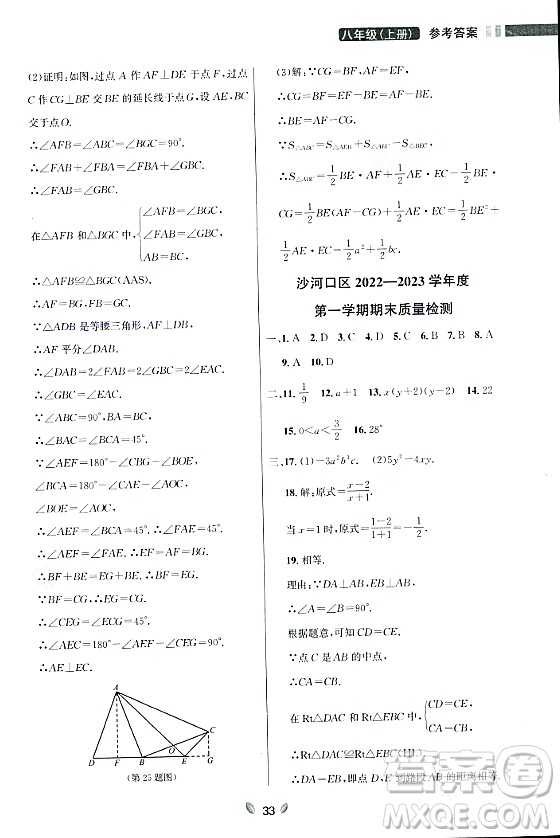 八年级(上册) 参考答案
(2)证明:如图,过点 A 作 AF⊥DE 于点 F,过点
C 作 CG⊥BE 交 BE 的延长线于点 G,设 AC,BE
交于点 O.
∴∠AFB=∠ABC=∠BGC=90°.
∴∠FAB+∠FBA=∠FBA+∠GBC.
∴∠FAB=∠GBC.
在△AFB 和△BGC 中, { ∠FAB=∠GBC, ∠AFB=∠BGC, AB=BC,
∴△AFB≌△BGC(AAS).
∴AF=BG,BF=CG.
∵△ADB 是等腰三角形,AF⊥DB,
∴AF 平分∠DAB.
∴∠DAB=2∠FAB=2∠EBC.
∴∠FAB=∠EBC=∠EAC.
∵∠ABC=90°,AB=BC,
∴∠BAC=∠BCA=45°.
∵∠AEF=180°-∠EAC-∠AOE,
∠BCA=180°-∠EBC-∠BOC,∠AOE=
∠BOC,
∴∠AEF=∠BCA=45°.
∴∠AFE=90°,
∴∠FAE=∠AEF=45°.
∴AF=FE=BG.
∴BF+BE=BE+EG.
∴BF=EG=CG.
∴∠CEG=∠ECG=45°.
∴∠AEC=180°-∠AEF-∠CEG=90°.
∴AE⊥EC.
A
C
D F B E G
(第25题图)
(3)解:∵CG=BF=EG,
∴AF=FE=BE+BF.
∴BE=AF-BF.
∵S△ABC=S△ABE+S△AEC-S△BEC,
∴S△ABC=1/2 BE·AF+1/2 AE·EC-1/2 BE·
CG=1/2 BE(AF-BF)+1/2 AE·EC=1/2 BE²+
1/2 AE·EC=1/2 a²+1/2 bc.
沙河口区 2022—2023 学年度
第一学期期末质量检测
一、1. A 2. D 3. C 4. D 5. B 6. C 7. B 8. B
9. A 10. D
二、11. 1/9 12. a+1 13. x(y+2)(y-2) 14. 22
15. 0<a<3/2 16. 28°
三、17. (1)-3a²b³c. (2)5y²-4xy.
18. 解:原式=(x-2)/(x+1).
当 x=1 时,原式=(1-2)/(1+1)=-1/2.
19. 相等.
理由:∵DA⊥AB,EB⊥AB,
∴∠A=∠B=90°.
根据题意,可知 CD=CE.
∵点 C 是 AB 的中点,
∴CA=CB.
在 Rt△DAC 和 Rt△EBC 中, { CD=CE, CA=CB,
∴Rt△DAC≌Rt△EBC(HL).
∴DA=EB,即点 D,E 到路段 AB 的距离相等.
33